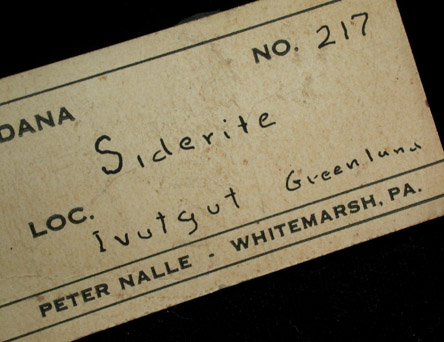 NO. 217
DANA
Siderite
LOC. Ivutgut Greenland
PETER NALLE · WHITEMARSH, PA.